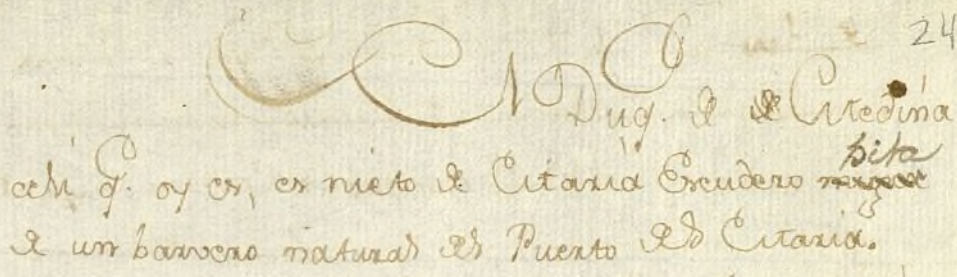 24
El Duq. de de Medina
celi q. oy es, es nieto de Maria Escudero hija
de un barvero natural del Puerto de Sta Maria.